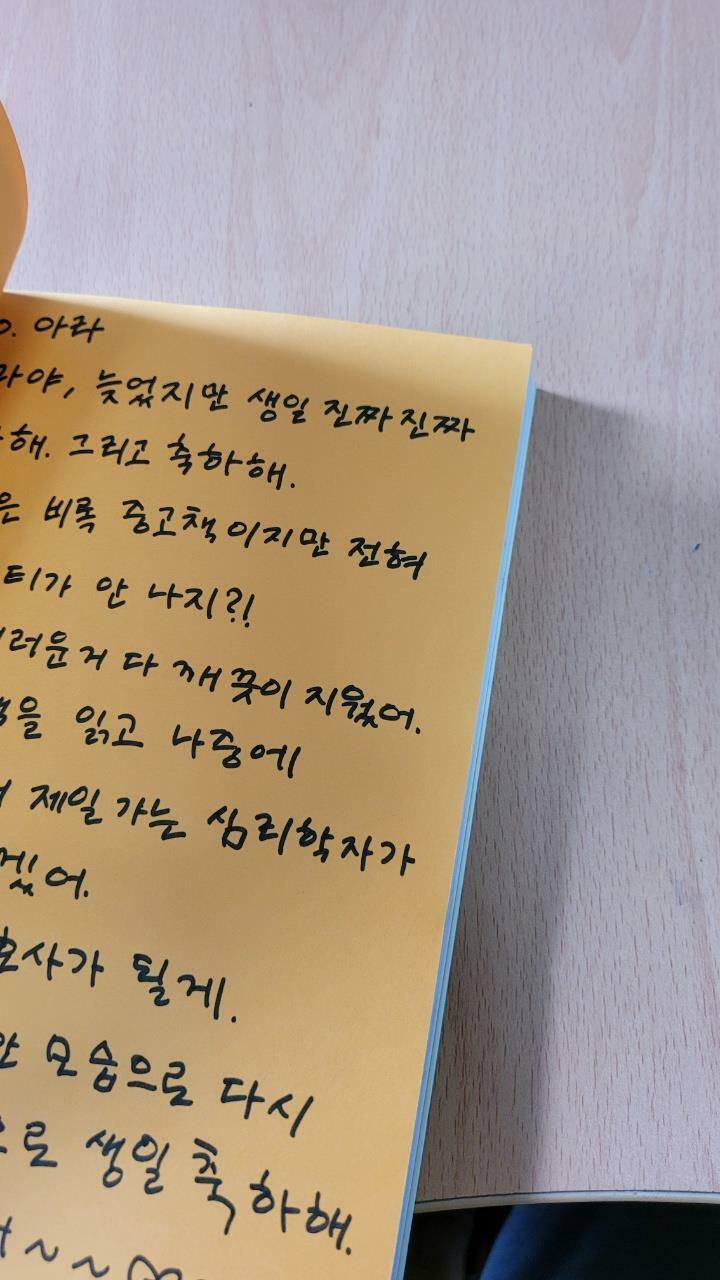 o. 아라
라야, 늦었지만 생일 진짜 진짜
해. 그리고 축하해.
은 비록 중고책이지만 전혀
티가 안 나지?!
러운거 다 깨끗이 지웠어.
을 읽고 나중에
제일 가는 심리학자가
겠어.
호사가 될게.
모습으로 다시
으로 생일 축하해.
~~♡